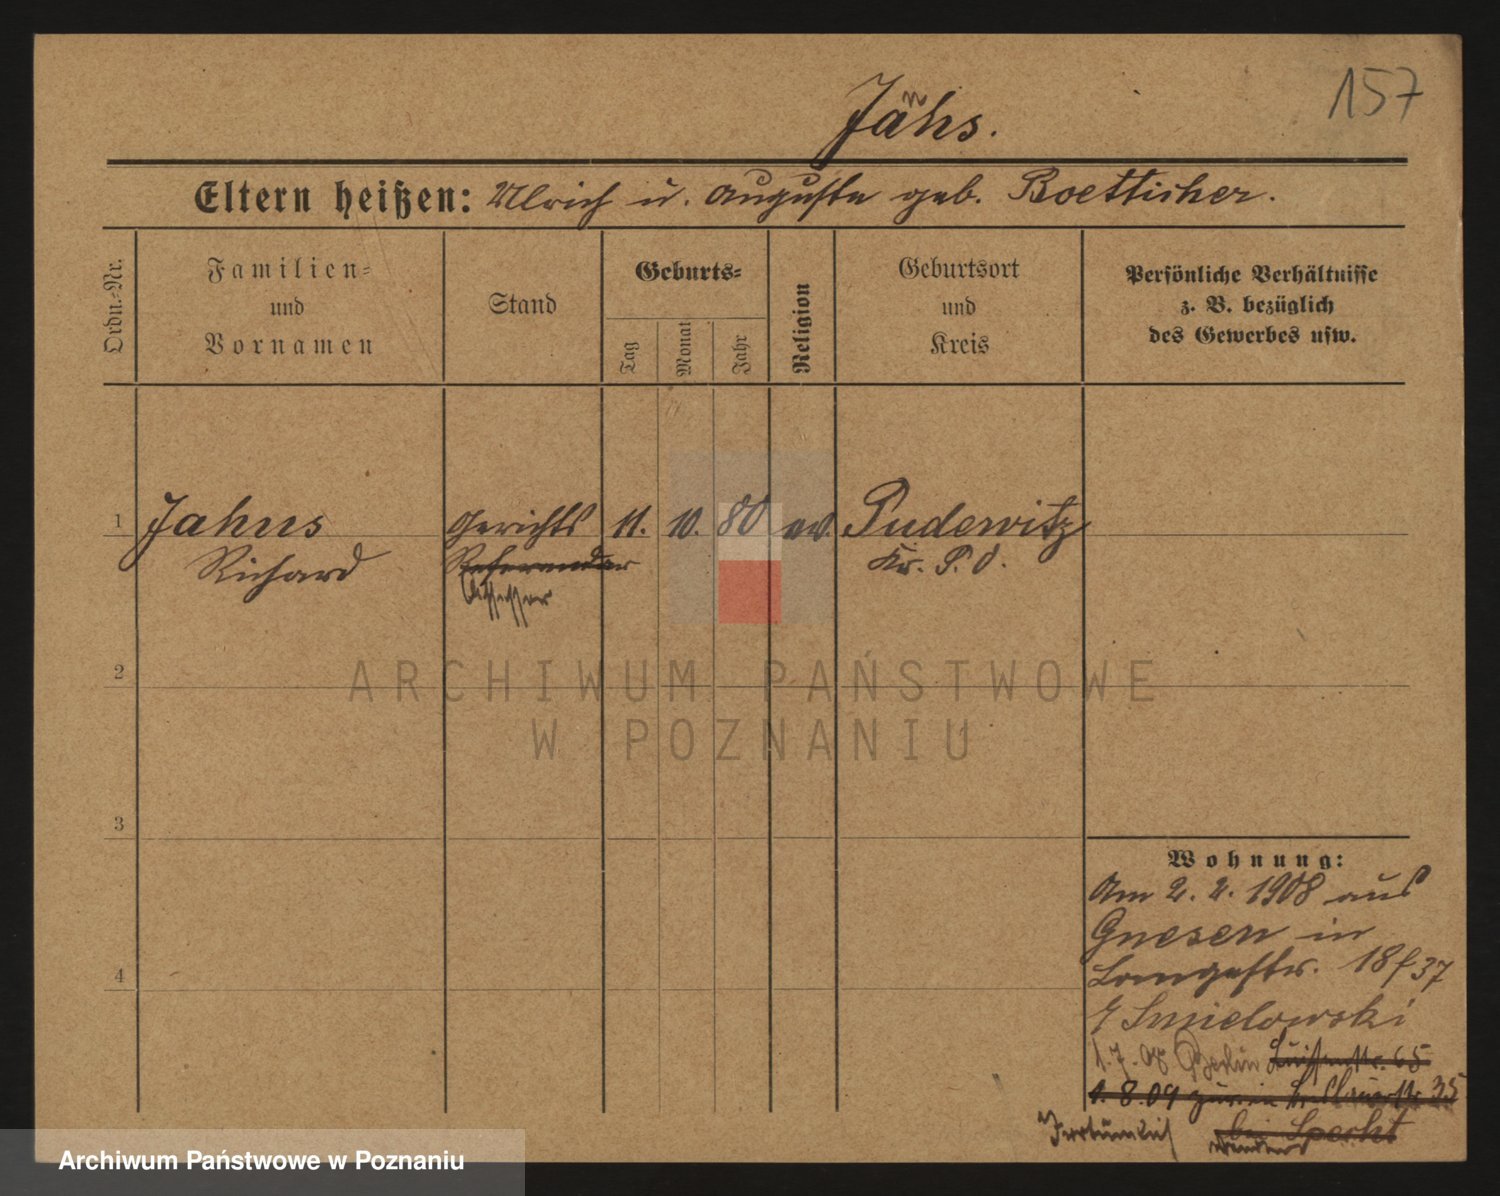 157
Jähns.
Eltern heißen: Ulrich u. Auguste geb. Boetticher.
Ordn.-Nr.
Familien-
und
Vornamen
Stand
Geburts-
Tag
Monat
Jahr
Religion
Geburtsort
und
Kreis
Persönliche Verhältnisse
z. B. bezüglich
des Gewerbes usw.
1
Jahns
Richard
Gerichts
Referendar
Assessor
11.
10.
80
ev.
Pudewitz
Kr. P. O.
2
ARCHIWUM PAŃSTWOWE
W POZNANIU
3
4
Wohnung:
Am 2. 2. 1908 aus
Gnesen in
Langestr. 18
Smielowski
1.7.08 Berlin 65
1.8.09 35
bei Specht
Irrtümlich
Archiwum Państwowe w Poznaniu